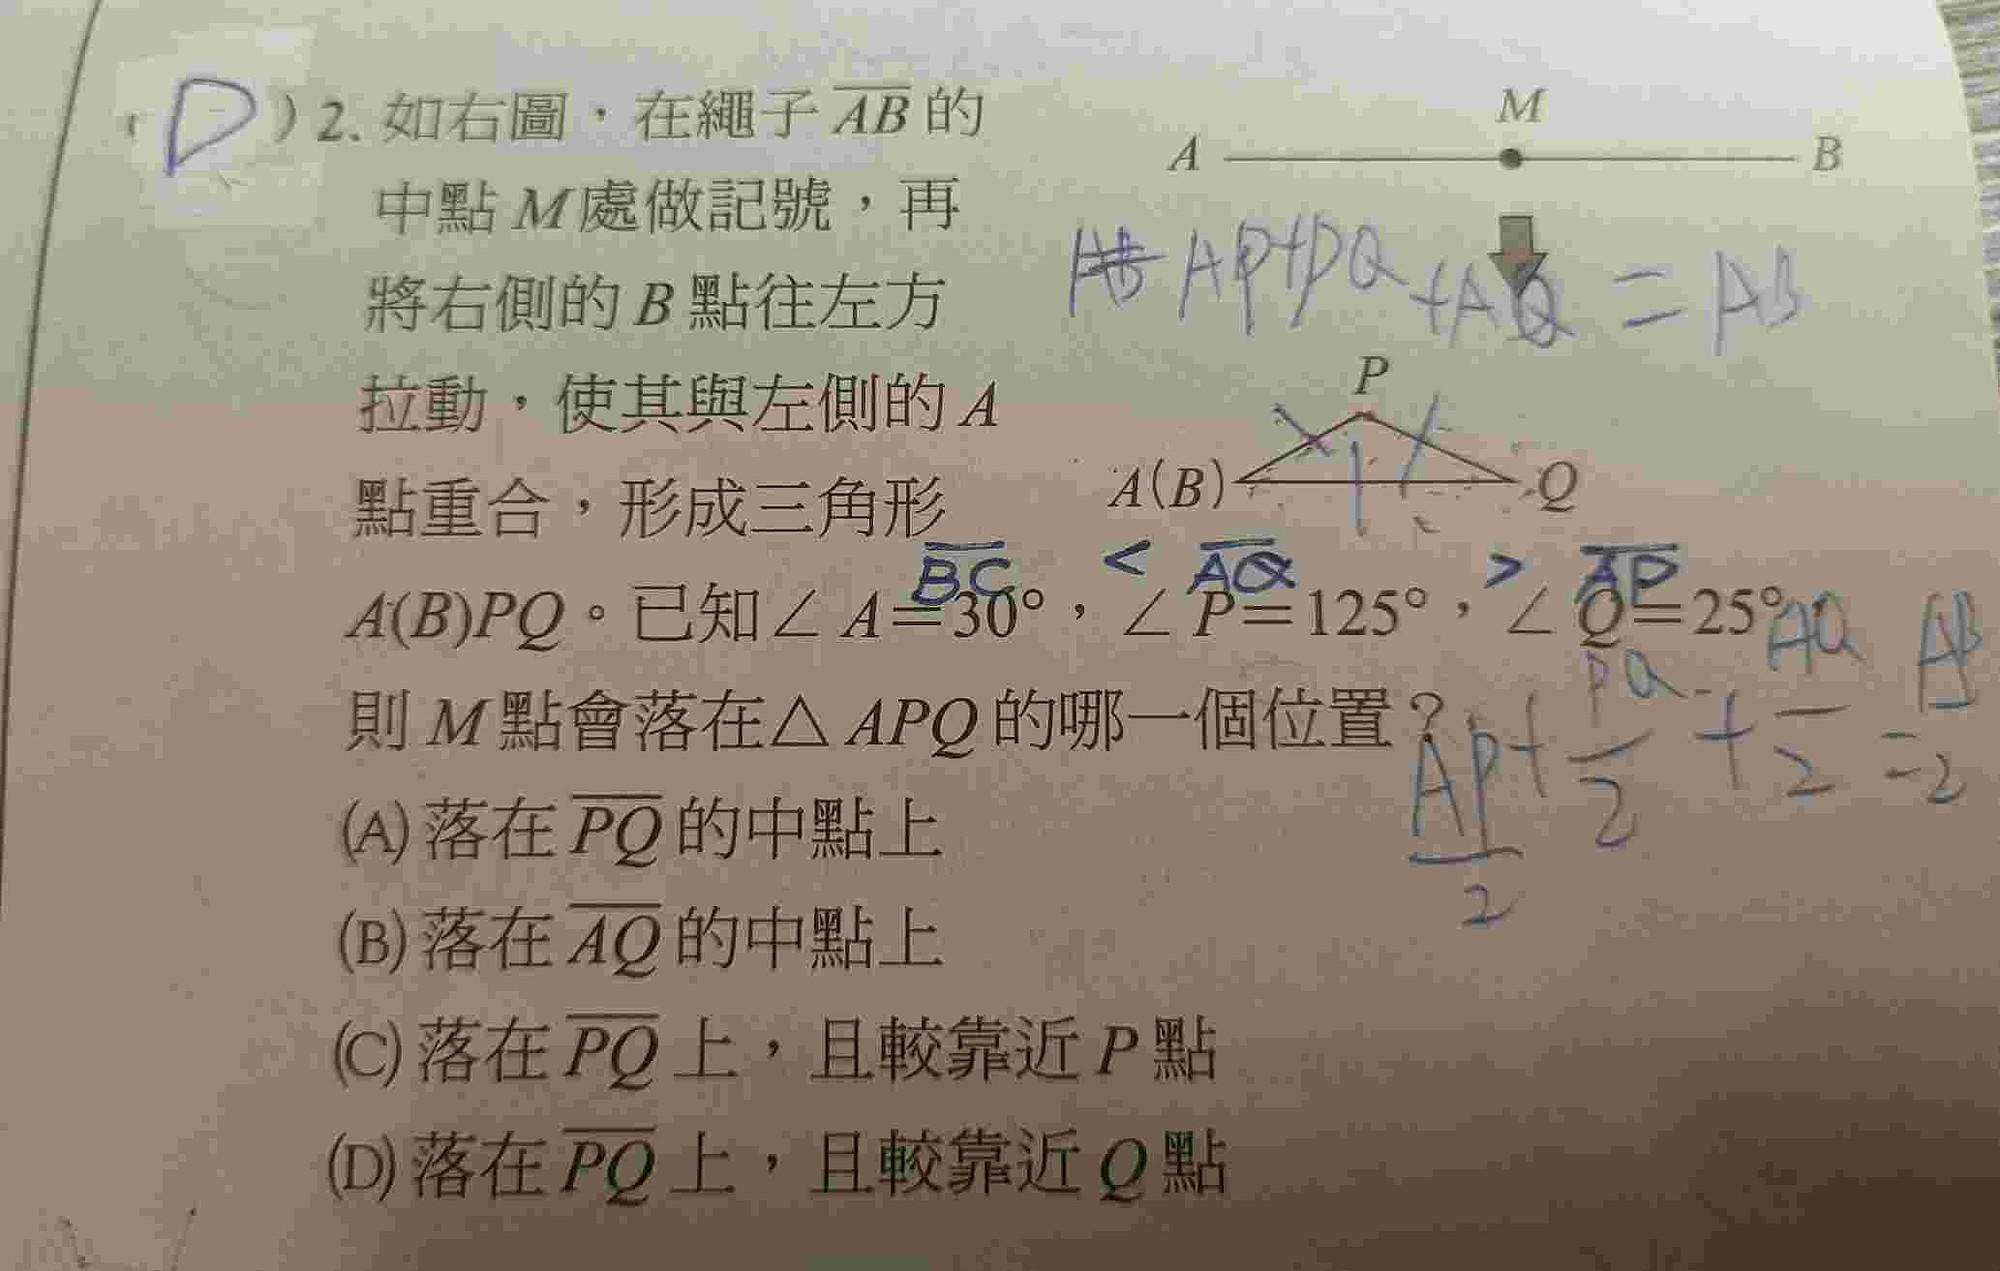 (D) 2. 如右圖，在繩子 AB 的
中點 M 處做記號，再
將右側的 B 點往左方
拉動，使其與左側的 A
點重合，形成三角形
A(B)PQ。已知∠A=30°，∠P=125°，∠Q=25°，
則 M 點會落在△APQ 的哪一個位置？
(A) 落在 PQ 的中點上
(B) 落在 AQ 的中點上
(C) 落在 PQ 上，且較靠近 P 點
(D) 落在 PQ 上，且較靠近 Q 點
M
A B
AP+PQ+AQ=AB
P
A(B) Q
BC < AQ > AP
AP/2 + PQ/2 + AQ/2 = AB/2